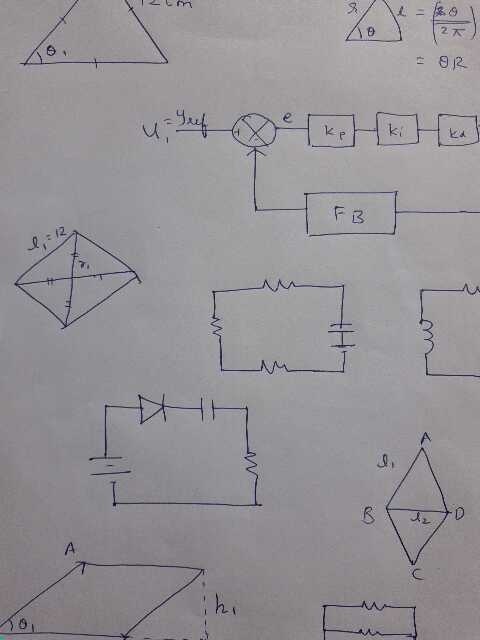 12 cm
θ₁
l = θ
2π
= θR
θ
U₁ = yref
e
kp
ki
kd
FB
l₁ = 12
r₁
A
l₁
B
l₂
D
C
A
θ₁
h₁